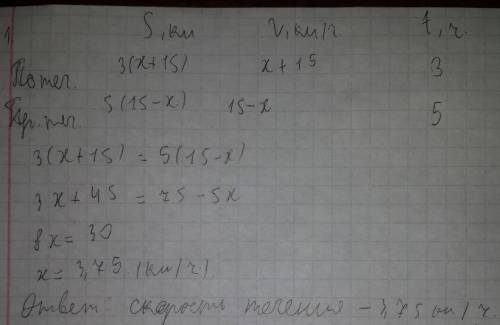 1 S, км V, км/ч t, ч.
По теч. 3(x+15) x+15 3
Пр. теч. 5(15-x) 15-x 5
3(x+15) = 5(15-x)
3x+45 = 75-5x
8x= 30
x= 3,75 (км/ч)
Ответ: скорость течения - 3,75 км/ч.